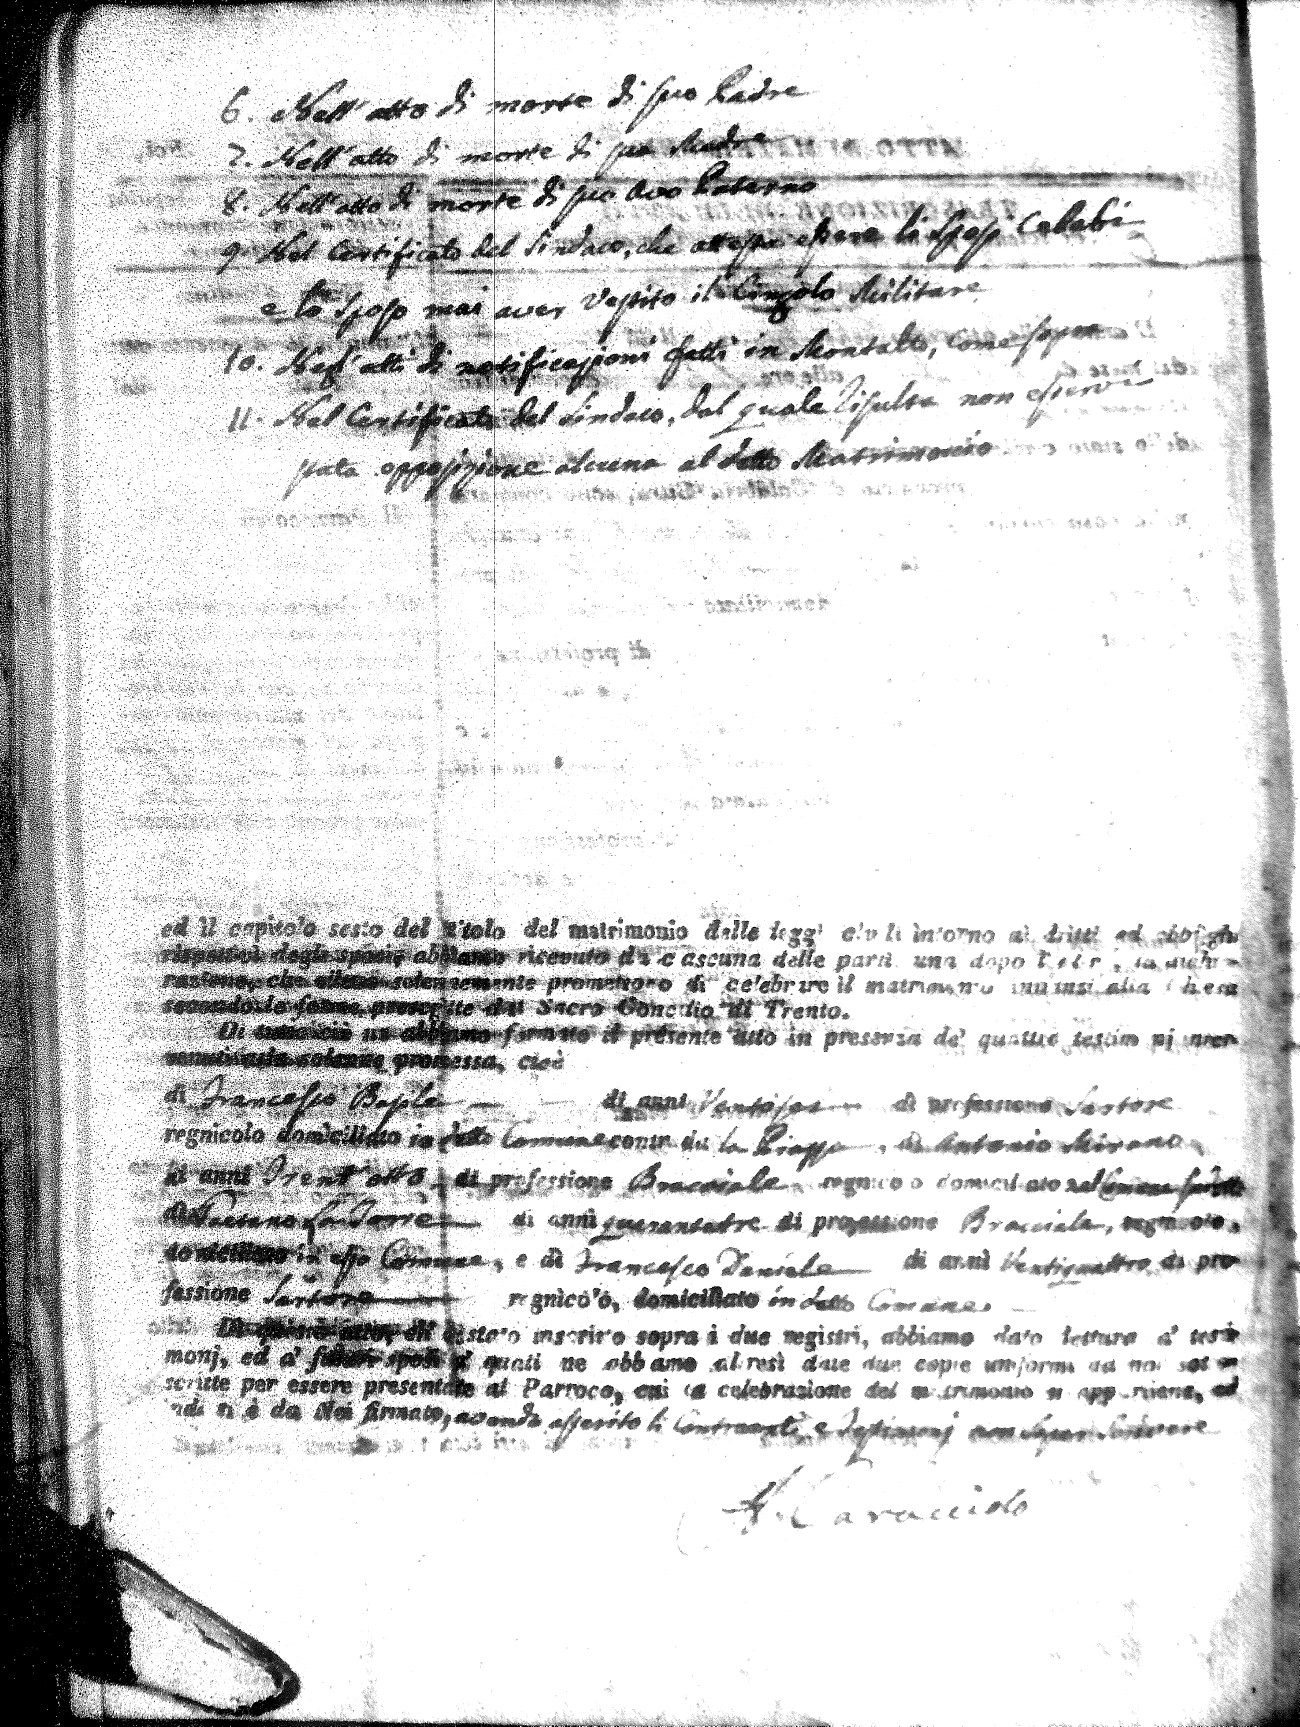 6. Nell'atto di morte di suo Padre
7. Nell'atto di morte di sua Madre
8. Nell'atto di morte di suo Avo Paterno
9. Nel Certificato del Sindaco, che attesta essere li Sposi Celebi
e lo Sposo mai aver vestito il Cingolo Militare
10. Negl'atti di notificazioni fatti in Montalto, come sopra
11. Nel Certificato del Sindaco, dal quale risulta non essere
stata opposizione alcuna al detto Matrimonio
ed il capitolo sesto del titolo del matrimonio delle leggi civili intorno ai dritti ed obblighi
rispettivi degli sposi, abbiamo ricevuto da ciascuna delle parti una dopo l'altra, la dichia-
razione, che elleno solennemente promettono di celebrare il matrimonio innanzi alla Chiesa
secondo le forme prescritte dal Sacro Concilio di Trento.
Di tutto ciò ne abbiamo formato il presente atto in presenza de' quattro testimonj inter-
venuti alla solenne promessa, cioè
di Francesco Basile di anni di professione Sartore
regnicolo domiciliato in detto Comune contrada la Piazza, di Antonio Mirano
di anni Trent'otto di professione Bracciale regnicolo domiciliato nel
di Gaetano La Torre di anni quarantatre di professione Bracciale, regnicolo,
domiciliato in esso Comune, e di Francesco Daniele di anni Ventiquattro di pro-
fessione Sartore regnicolo, domiciliato in detto Comune.
Di questo atto, ch'è stato inscritto sopra i due registri, abbiamo dato lettura a' testi-
monj, ed a' futuri sposi a' quali ne abbiamo altresì date due copie uniformi da noi sot-
scritte per essere presentate al Parroco, cui la celebrazione del matrimonio si appartiene, ed
indi si è da Noi firmato, avendo asserito li Contraenti, e Testimonj non saper scrivere
Caracciolo